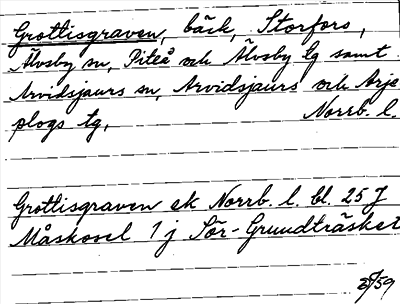 Grottisgraven, bäck, Storfors,
Älvsby sn, Piteå och Älvsby tg samt
Arvidsjaurs sn, Arvidsjaurs och Arje
plogs tg, Norrb. l.
Grottisgraven ek Norrb. l. bl. 25 J
Måskosel 1 j Sör-Grundträsket
59